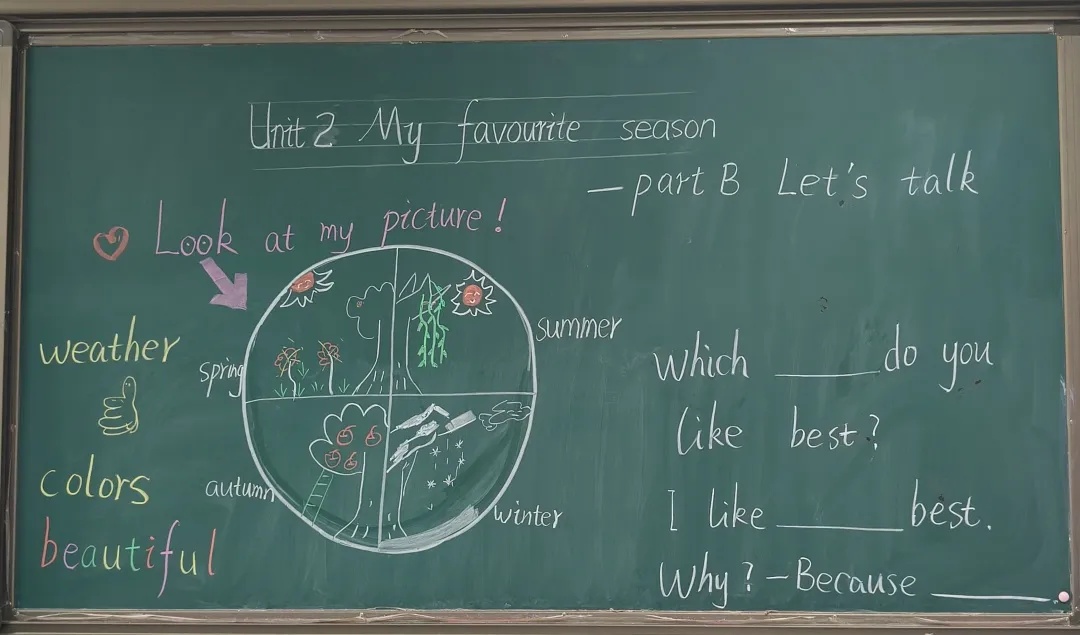 Unit 2 My favourite season
—part B Let's talk
Look at my picture!
weather
colors
beautiful
spring
summer
autumn
winter
Which ______ do you
like best?
I like ______ best.
Why? —Because ______